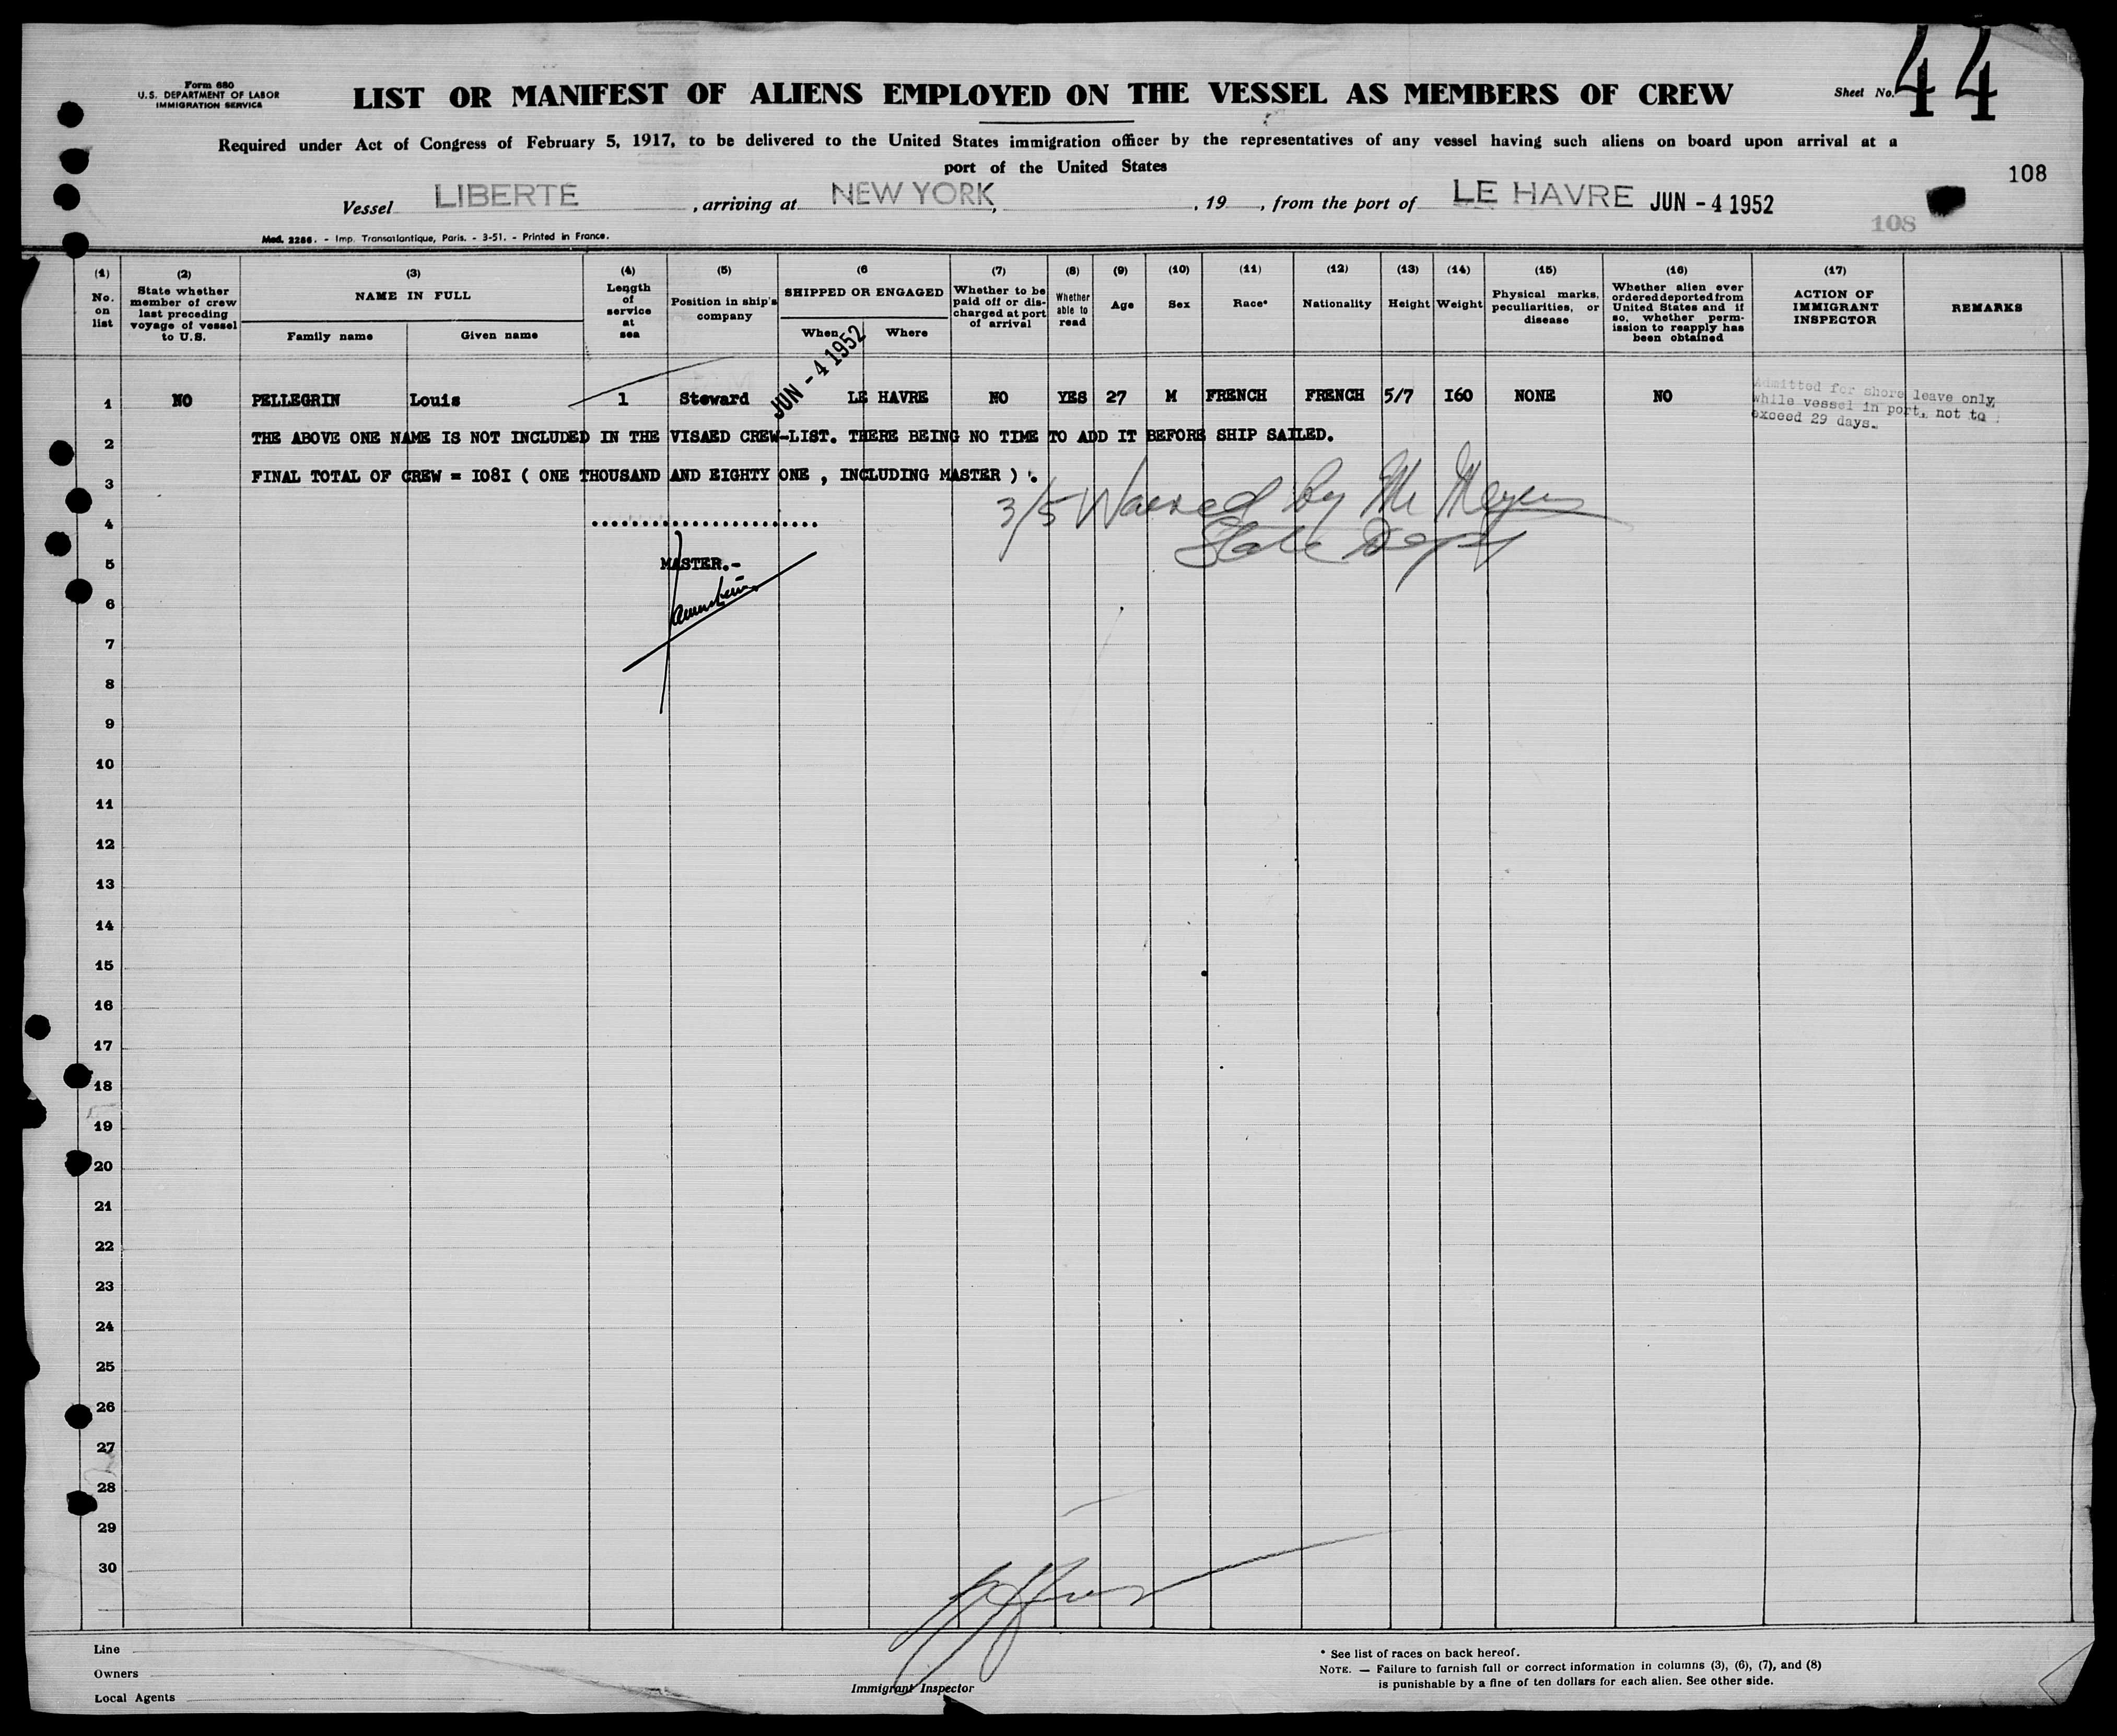 44
Form 680
U.S. DEPARTMENT OF LABOR
IMMIGRATION SERVICE
LIST OR MANIFEST OF ALIENS EMPLOYED ON THE VESSEL AS MEMBERS OF CREW
Sheet No.
Required under Act of Congress of February 5, 1917, to be delivered to the United States immigration officer by the representatives of any vessel having such aliens on board upon arrival at a
port of the United States
108
Vessel LIBERTE, arriving at NEW YORK, , 19 , from the port of LE HAVRE JUN - 4 1952
108
Mod. 2286. - Imp. Transatlantique, Paris. - 3-51. - Printed in France.
(1) No. on list
(2) State whether member of crew last preceding voyage of vessel to U.S.
(3) NAME IN FULL
Family name Given name
(4) Length of service at sea
(5) Position in ship's company
(6 SHIPPED OR ENGAGED
When Where
(7) Whether to be paid off or discharged at port of arrival
(8) Whether able to read
(9) Age
(10) Sex
(11) Race*
(12) Nationality
(13) Height
(14) Weight
(15) Physical marks, peculiarities, or disease
(16) Whether alien ever ordered deported from United States and if so, whether permission to reapply has been obtained
(17) ACTION OF IMMIGRANT INSPECTOR
REMARKS
1 NO PELLEGRIN Louis 1 Steward JUN - 4 1952 LE HAVRE NO YES 27 M FRENCH FRENCH 5/7 I60 NONE NO
Admitted for shore leave only,
while vessel in port, not to
exceed 29 days.
2 THE ABOVE ONE NAME IS NOT INCLUDED IN THE VISAED CREW-LIST. THERE BEING NO TIME TO ADD IT BEFORE SHIP SAILED.
3 FINAL TOTAL OF CREW = I08I ( ONE THOUSAND AND EIGHTY ONE , INCLUDING MASTER ) .
3/5 Waived by Mr Meyers
4
State Dept
5 MASTER.-
6
7
8
9
10
11
12
13
14
15
16
17
18
19
20
21
22
23
24
25
26
27
28
29
30
Line
Owners
Local Agents
Immigrant Inspector
* See list of races on back hereof.
NOTE. — Failure to furnish full or correct information in columns (3), (6), (7), and (8)
is punishable by a fine of ten dollars for each alien. See other side.